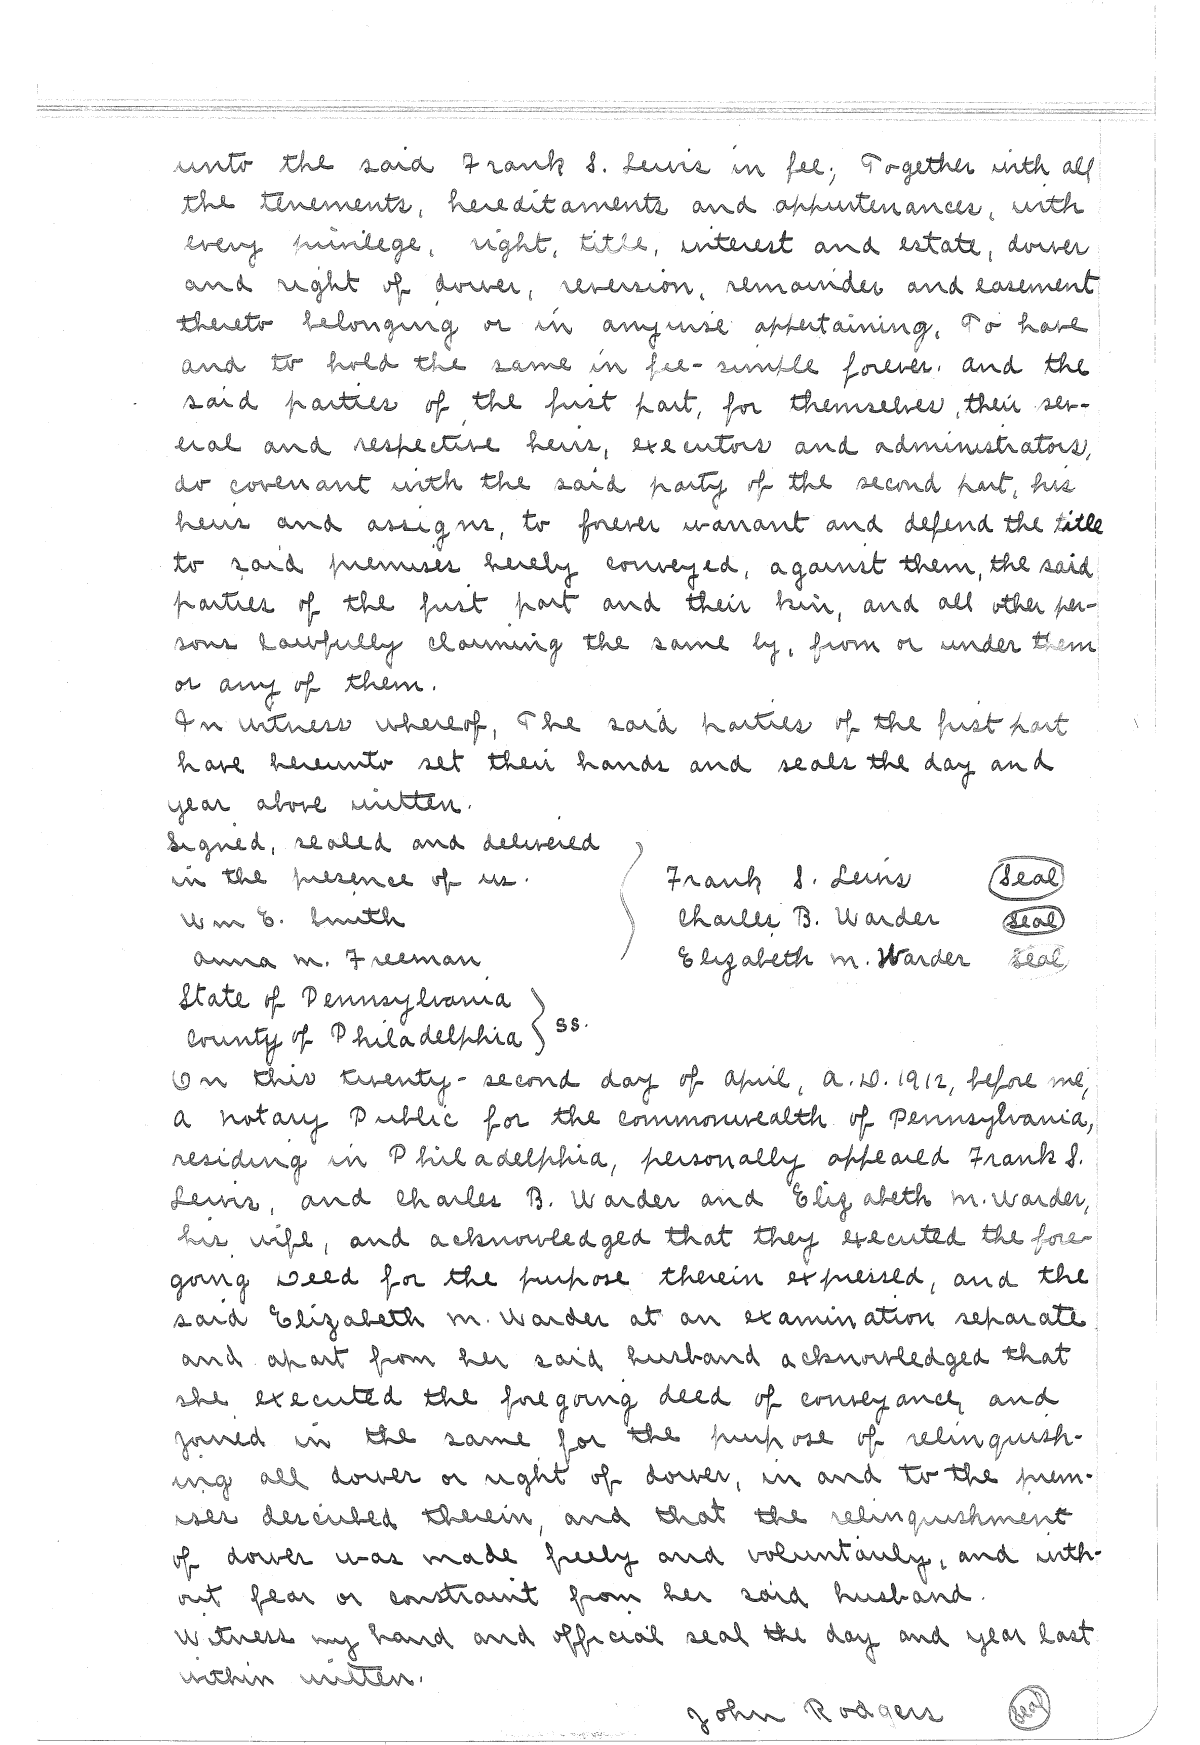 unto the said Frank S. Lewis in fee; Together with all
the tenements, hereditaments and appurtenances, with
every privilege, right, title, interest and estate, dower
and right of dower, reversion, remainder and easement
thereto belonging or in anywise appertaining, To have
and to hold the same in fee-simple forever. And the
said parties of the first part, for themselves, their sev-
eral and respective heirs, executors and administrators,
do covenant with the said party of the second part, his
heirs and assigns, to forever warrant and defend the title
to said premises hereby conveyed, against them, the said
parties of the first part and their kin, and all other per-
sons lawfully claiming the same by, from or under them
or any of them.
In witness whereof, The said parties of the first part
have hereunto set their hands and seals the day and
year above written.
Signed, sealed and delivered
in the presence of us. Frank S. Lewis Seal
Wm E. Smith Charles B. Warder Seal
Anna M. Freeman Elizabeth M. Warder Seal
State of Pennsylvania
County of Philadelphia } ss.
On this twenty-second day of April, A.D. 1912, before me,
a Notary Public for the commonwealth of Pennsylvania,
residing in Philadelphia, personally appeared Frank S.
Lewis, and Charles B. Warder and Elizabeth M. Warder,
his wife, and acknowledged that they executed the fore-
going Deed for the purpose therein expressed, and the
said Elizabeth M. Warder at an examination separate
and apart from her said husband acknowledged that
she executed the foregoing deed of conveyance, and
joined in the same for the purpose of relinquish-
ing all dower or right of dower, in and to the prem-
ises described therein, and that the relinquishment
of dower was made freely and voluntarily, and with-
out fear or constraint from her said husband.
Witness my hand and official seal the day and year last
within written.
John Rodgers Seal